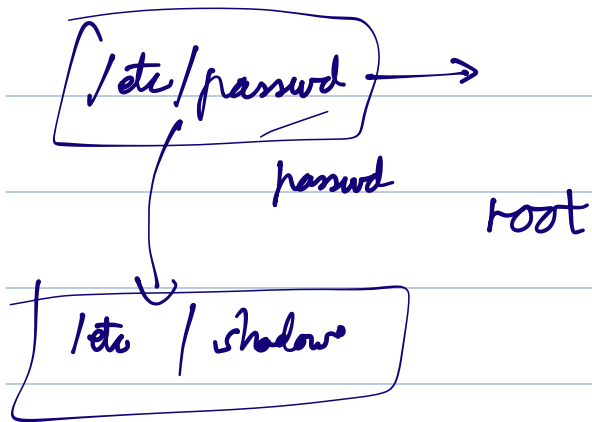 /etc/passwd
passwd
root
/etc / shadow